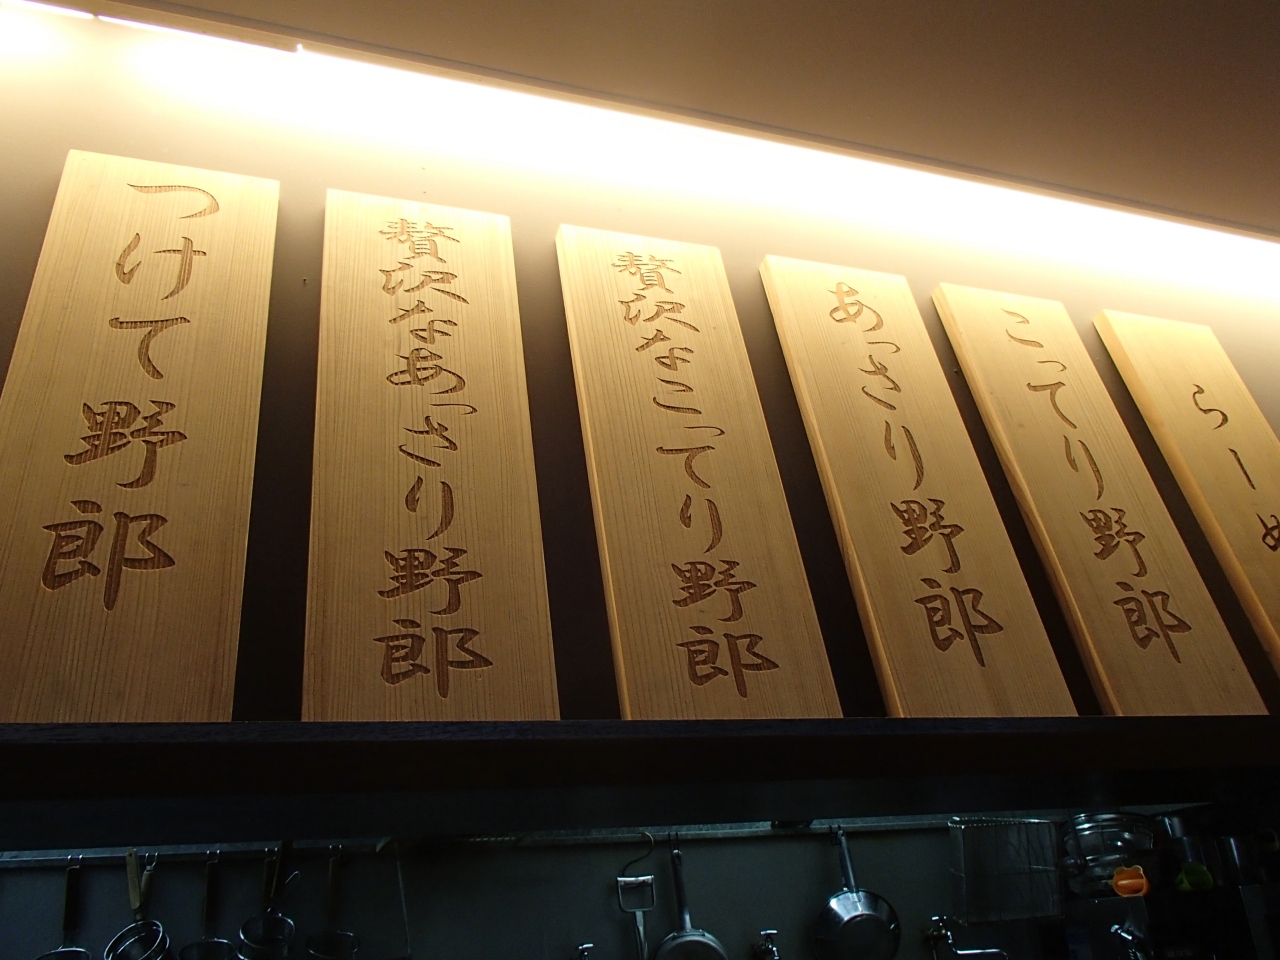 らーめ
こってり野郎
あっさり野郎
贅沢なこってり野郎
贅沢なあっさり野郎
つけて野郎